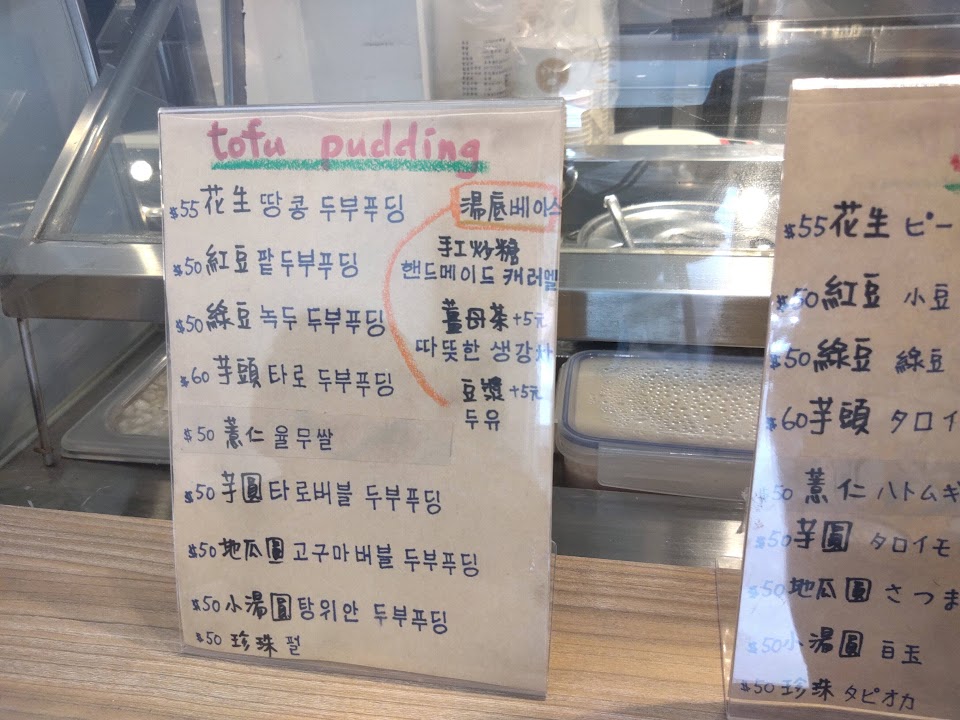 tofu pudding
$55 花生 땅콩 두부푸딩
$50 紅豆 팥 두부푸딩
$50 綠豆 녹두 두부푸딩
$60 芋頭 타로 두부푸딩
$50 薏仁 율무쌀
$50 芋圓 타로버블 두부푸딩
$50 地瓜圓 고구마버블 두부푸딩
$50 小湯圓 탕위안 두부푸딩
$50 珍珠 펄
湯底 베이스
手工炒糖
핸드메이드 캐러멜
薑母茶 +5元
따뜻한 생강차
豆漿 +5元
두유
$55 花生 ピー
$50 紅豆 小豆
$50 綠豆 綠豆
$60 芋頭 タロイ
$50 薏仁 ハトムギ
$50 芋圓 タロイモ
$50 地瓜圓 さつま
$50 小湯圓 白玉
$50 珍珠 タピオカ